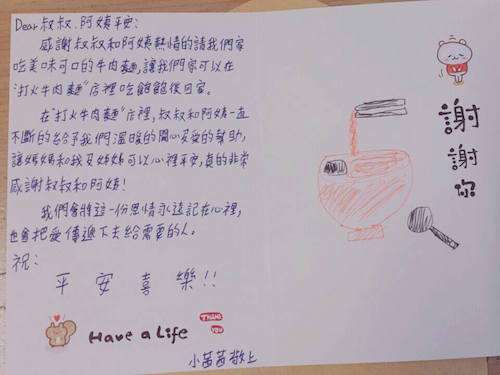 Dear叔叔.阿姨平安:
感謝叔叔和阿姨熱情的請我們家
吃美味可口的牛肉麵,讓我們家可以在
"打火牛肉麵"店裡吃飽飽後回家。
在"打火牛肉麵"店裡,叔叔和阿姨一直
不斷的給予我們溫暖的關心及愛的幫助,
讓媽媽和我及姊姊可以心裡平安,真的非常
感謝叔叔和阿姨!
我們會將這一份恩情永遠記在心裡,
也會把愛傳遞下去給需要的人。
祝:
平安喜樂!!
Have a Life
THANK YOU
小茜茜敬上
謝謝你